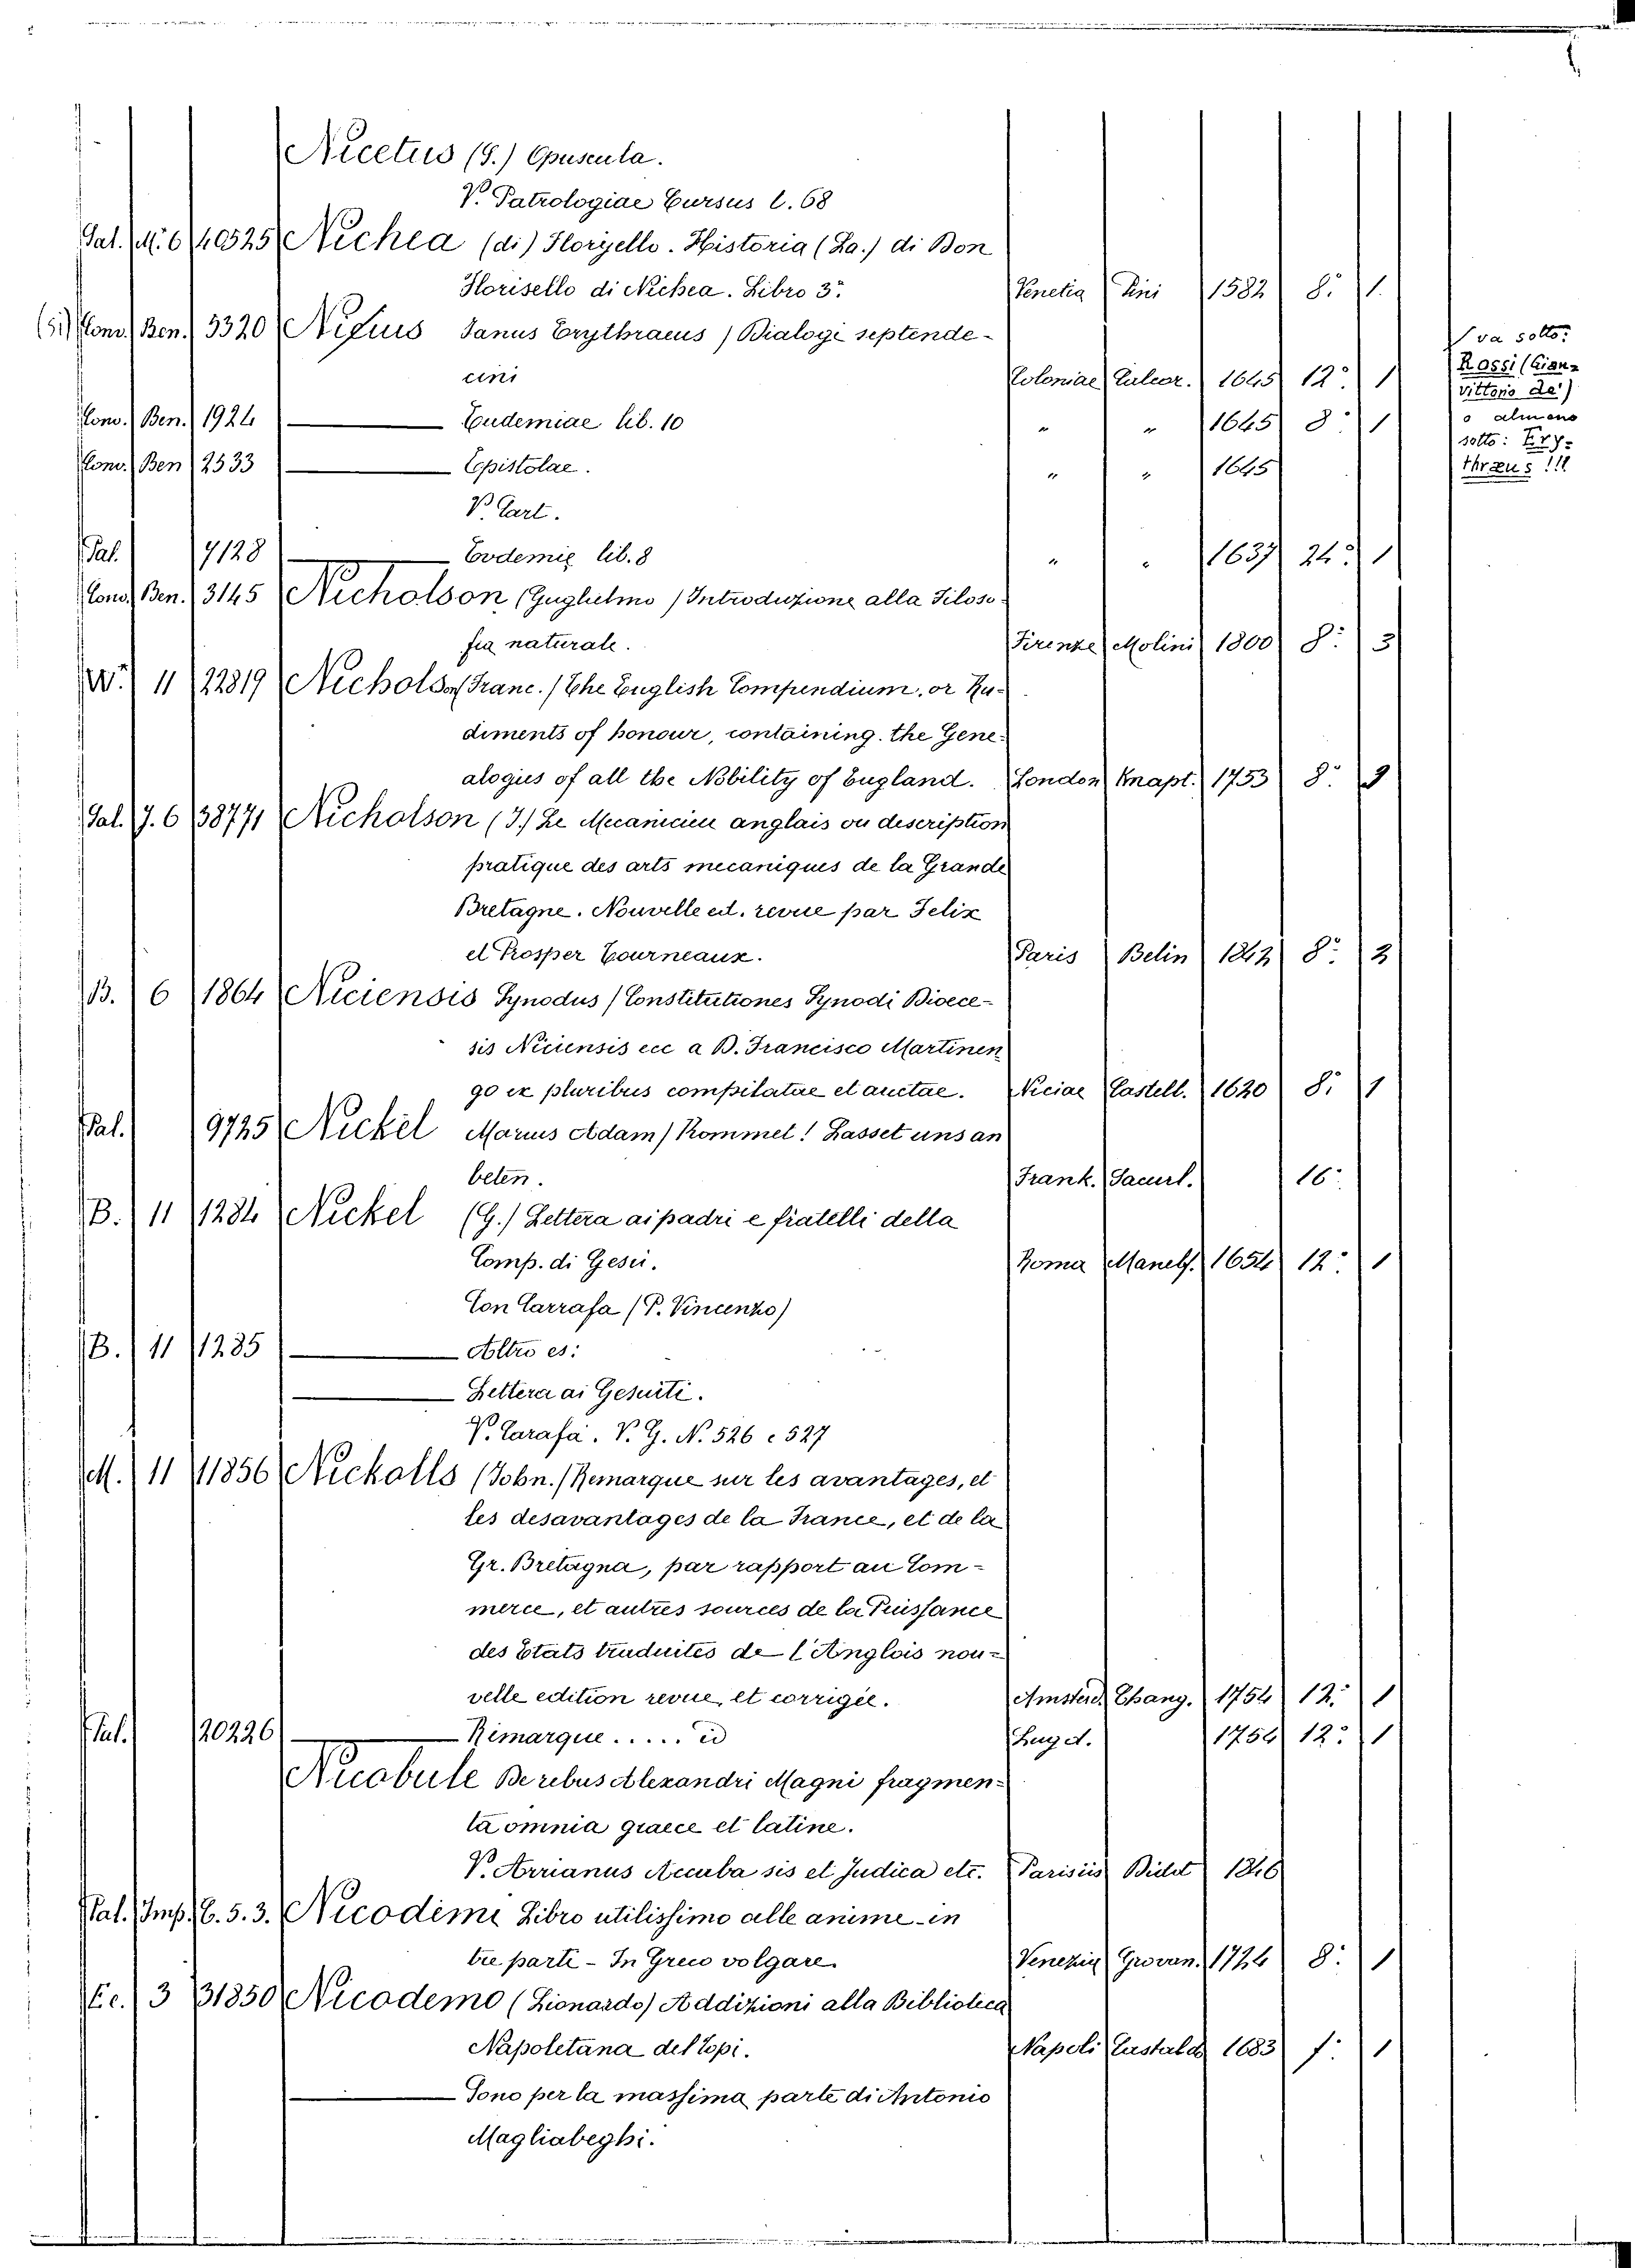 Nicetus (S.) Opuscula.
V. Patrologiae Cursus t. 68
Sal. M. 6 40525 Nichea (di) Floryello. Historia (La.) di Don
Florisello di Nichea. Libro 3.º Venetia Zini 1582 8. 1.
(si) Conv. Ben. 3320 Nicius Janus Erythraeus / Dialogi septende-
cini Coloniae Calcor. 1645 12º 1
Va sotto:
Rossi (Gian-
vittorio de')
o almeno
sotto: Ery-
thraeus !!!
Conv. Ben. 1924 Eudemiae lib. 10 " " 1645 8º 1
Conv. Ben 2533 Epistolae. " " 1645
V. Cart.
Pal. 7128 Eudemię lib. 8 " " 1637 24º 1
Conv. Ben. 3145 Nicholson (Guglielmo / Introduzione alla Filoso-
fia naturale. Firenze Molini 1800 8º 3
W. 11 22819 Nichols (Franc. / The English Compendium, or Ru-
diments of honour, containing the Gene-
alogies of all the Nobility of England. London Knapt. 1753 8º
Sal. J. 6 38771 Nicholson (J.) Le Mecanicien anglais ou description
pratique des arts mecaniques de la Grande
Bretagne. Nouvelle ed. revue par Felix
et Prosper Tourneaux. Paris Belin 1842 8º 2
B. 6 1864 Niciensis Synodus / Constitutiones Synodi Dioece-
sis Niciensis ecc a D. Francisco Martinen
go ex pluribus compilatae et auctae. Niciae Castell. 1620 8. 1
Pal. 9725 Nickel Marius Adam / Kommet! Lasset uns an
beten. Frank. Sauerl. 16º
B. 11 1284 Nickel (G.) Lettera ai padri e fratelli della
Comp. di Gesù. Roma Manelf. 1654 12º 1
Con Carrafa (P. Vincenzo)
B. 11 1285 Altro es:
Lettera ai Gesuiti.
V. Carafa. V. G. N. 526 e 527
M. 11 11856 Nickolls (John. / Remarque sur les avantages, et
les desavantages de la France, et de la
Gr. Bretagna, par rapport au Com-
merce, et autres sources de la Puissance
des Etats traduites de l'Anglois nou-
velle edition revue, et corrigée. Amsterd. Chang. 1754 12. 1
Pal. 20226 Rimarque ..... id Lugd. 1754 12º 1
Nicobule De rebus Alexandri Magni fragmen-
ta omnia graece et latine.
V. Arrianus Accuba sis et Judica etc. Parisiis Didot 1846
Pal. Imp. C. 5. 3. Nicodimi Libro utilissimo alle anime - in
tre parti - In Greco volgare Venezia Grovan. 1724 8º 1
Ec. 3 31850 Nicodemo (Lionardo) Addizioni alla Biblioteca
Napoletana del Topi. Napoli Castald. 1683 f. 1
Sono per la massima parte di Antonio
Magliabeghi.